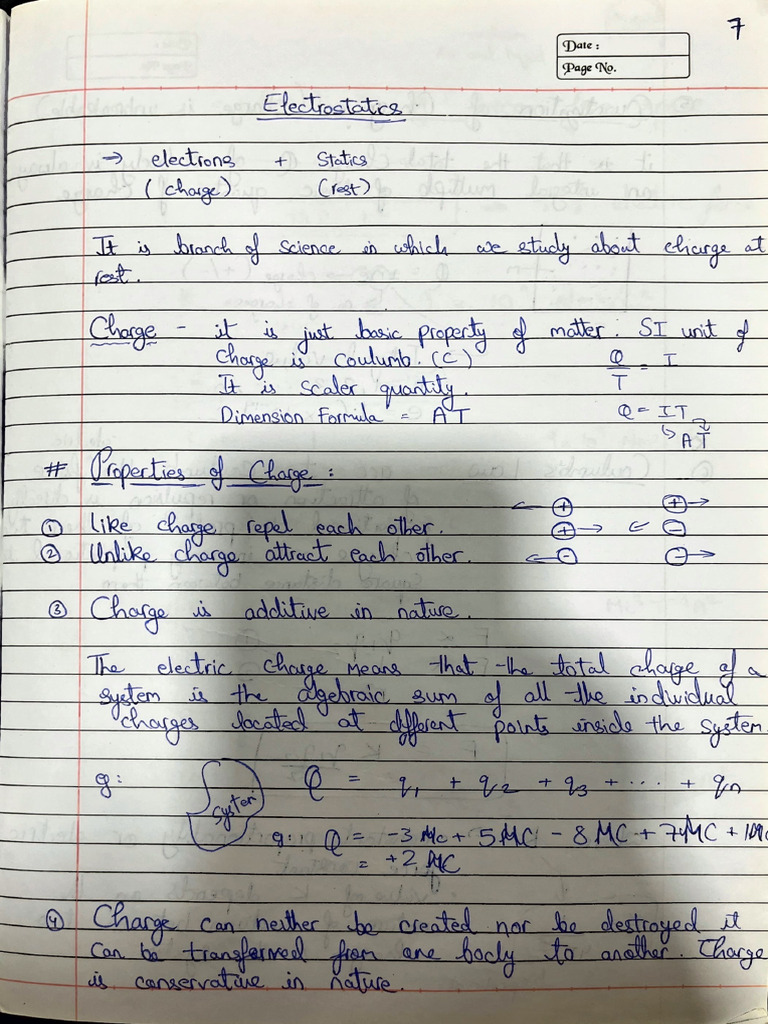 7
Date :
Page No.
Electrostatics.
→ electrons + Statics
(charge) (rest)
It is branch of science in which we study about charge at
rest.
Charge - it is just basic property of matter. SI unit of
Charge is Coulumb. (C) Q/T = I
It is scaler quantity.
Dimension Formula = AT Q = IT
↳ AT
# Properties of Charge :
① Like charge repel each other. ← ⊕ ⊕ →
② Unlike charge attract each other. ⊕ → ← ⊖
← ⊖ ⊖ →
③ Charge is additive in nature.
The electric charge means that the total charge of a
system is the algebraic sum of all the individual
charges located at different points inside the system.
eg: System Q = q1 + q2 + q3 + ... + qn
eg: Q = -3 MC + 5 MC - 8 MC + 7 MC +
= +2 MC
④ Charge can neither be created nor be destroyed it
can be transformed from one body to another. Charge
is conservative in nature.